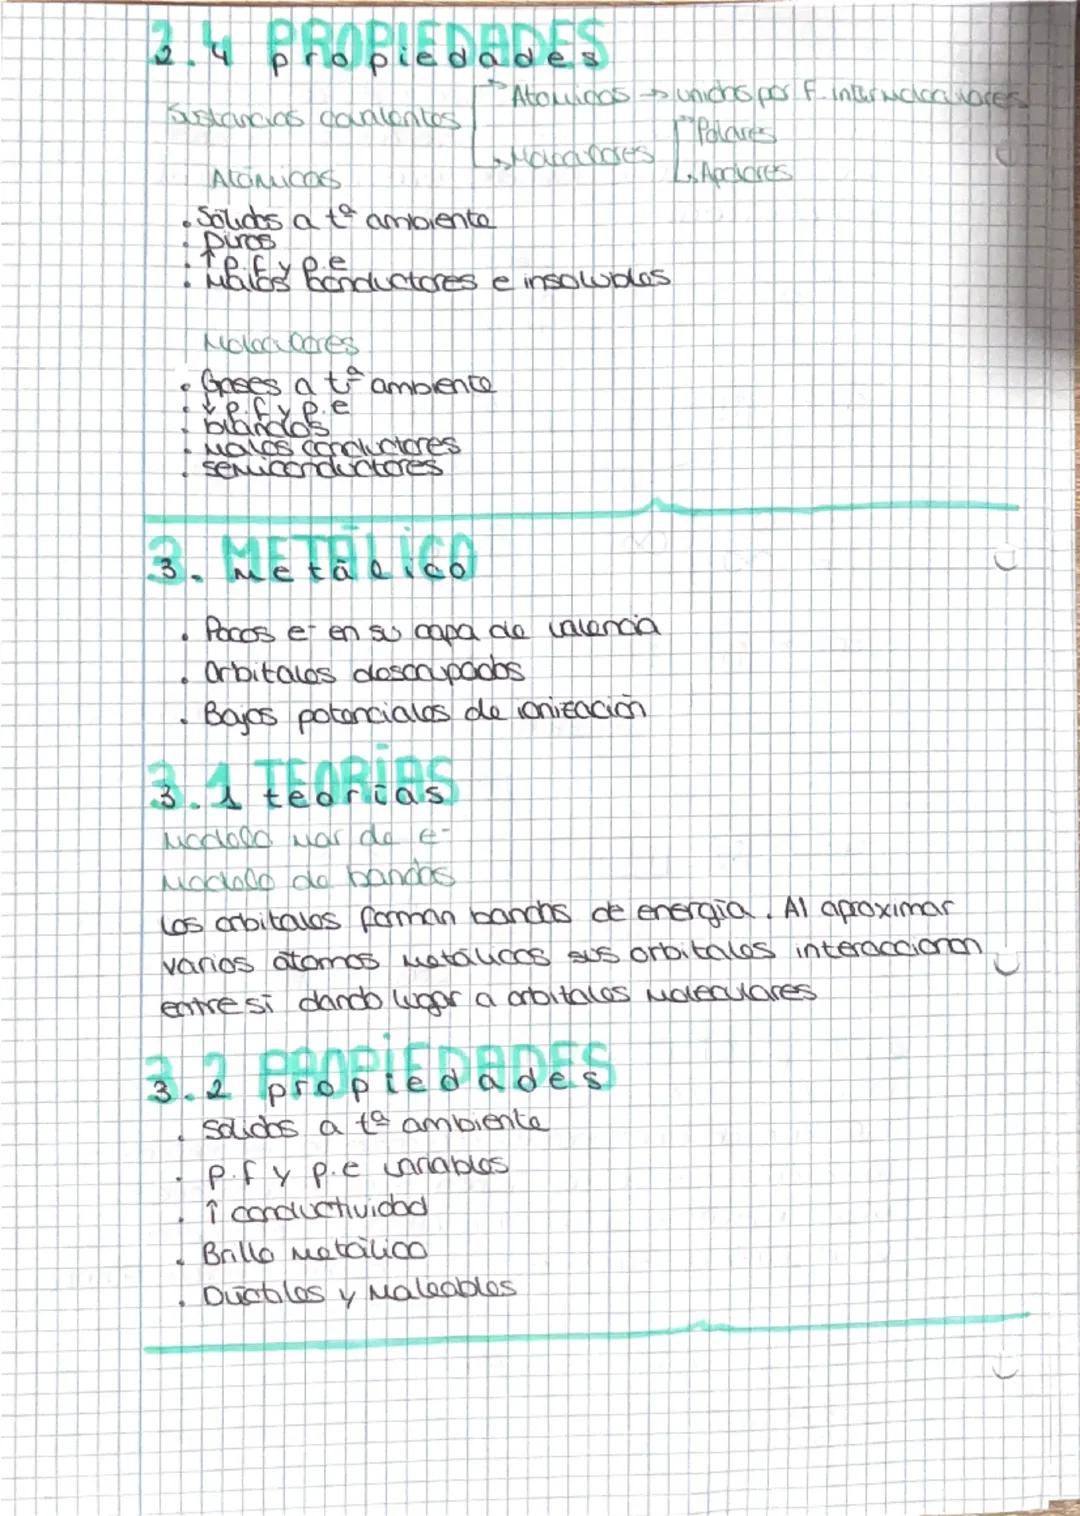 2.4 PROPIEDADES
Sustancias covalentes
Atómicas → unidas por F. intermoleculares
Moleculares
Polares
Apolares
Atómicas
• Sólidos a tª ambiente
• Duros
• ↑ p.f y p.e
• Malos conductores e insolubles
Moleculares
• Gases a tª ambiente
• ↓ p.f y p.e
• blandos
• malos conductores
• semiconductores
3. METÁLICO
• Pocos e⁻ en su capa de valencia
• Orbitales desocupados
• Bajos potenciales de ionización
3.1 TEORÍAS
Modelo mar de e⁻
Modelo de bandas
Los orbitales forman bandas de energía. Al aproximar
varios átomos metálicos sus orbitales interaccionan
entre sí dando lugar a orbitales moleculares
3.2 PROPIEDADES
• Sólidos a tª ambiente
• p.f y p.e variables
• ↑ conductividad
• Brillo metálico
• Dúctiles y maleables